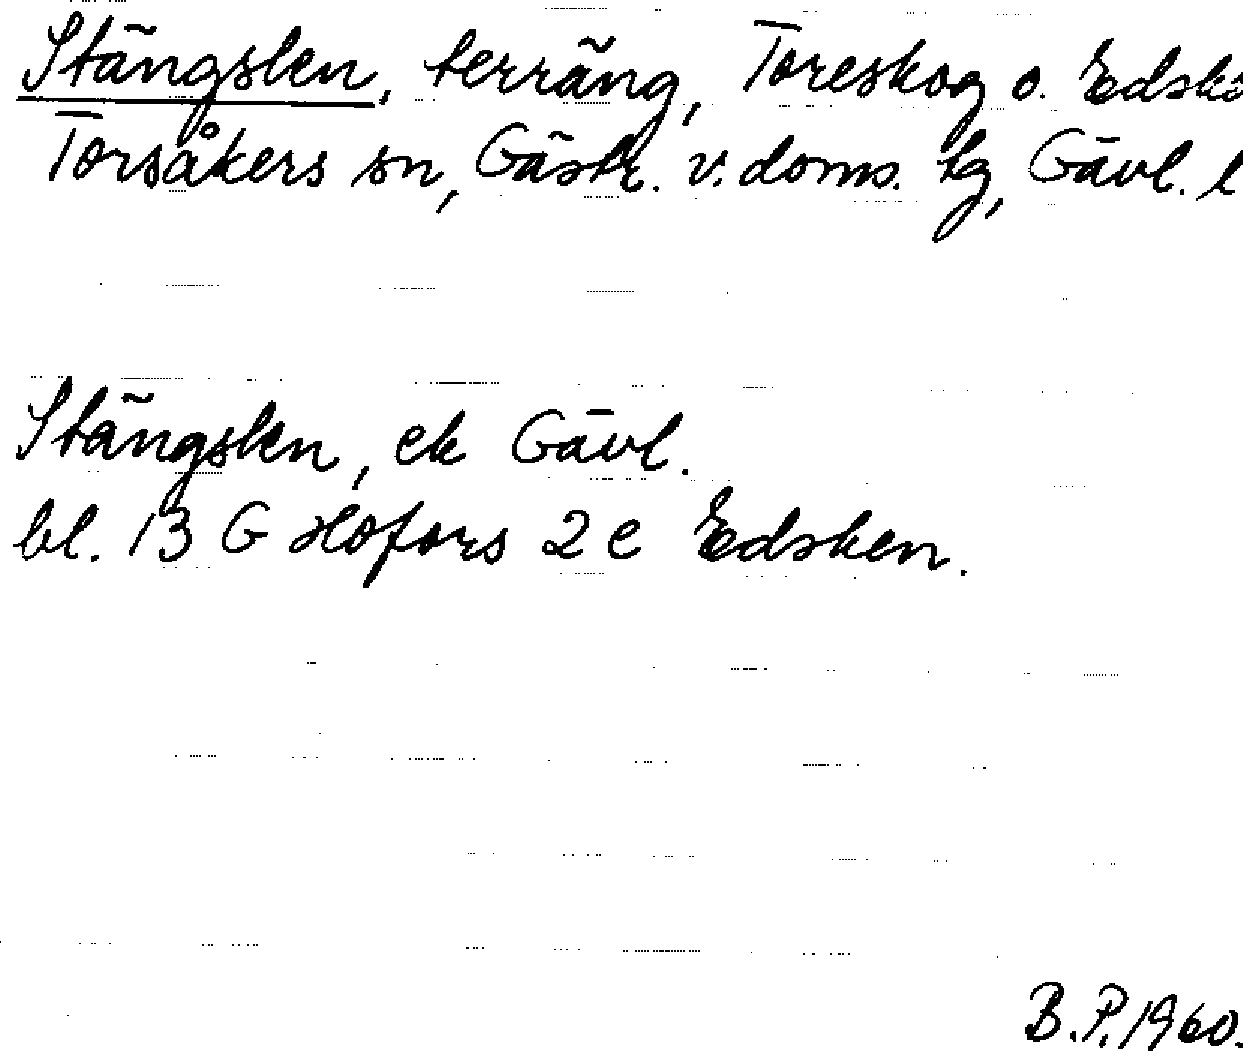 Stängslen, terräng, Toreskog o. Edskö
Torsåkers sn, Gästr. v. doms. tg, Gävl. l
Stängslen, ek Gävl.
bl. 13 G Hofors 2 e Edsken.
B.P. 1960.